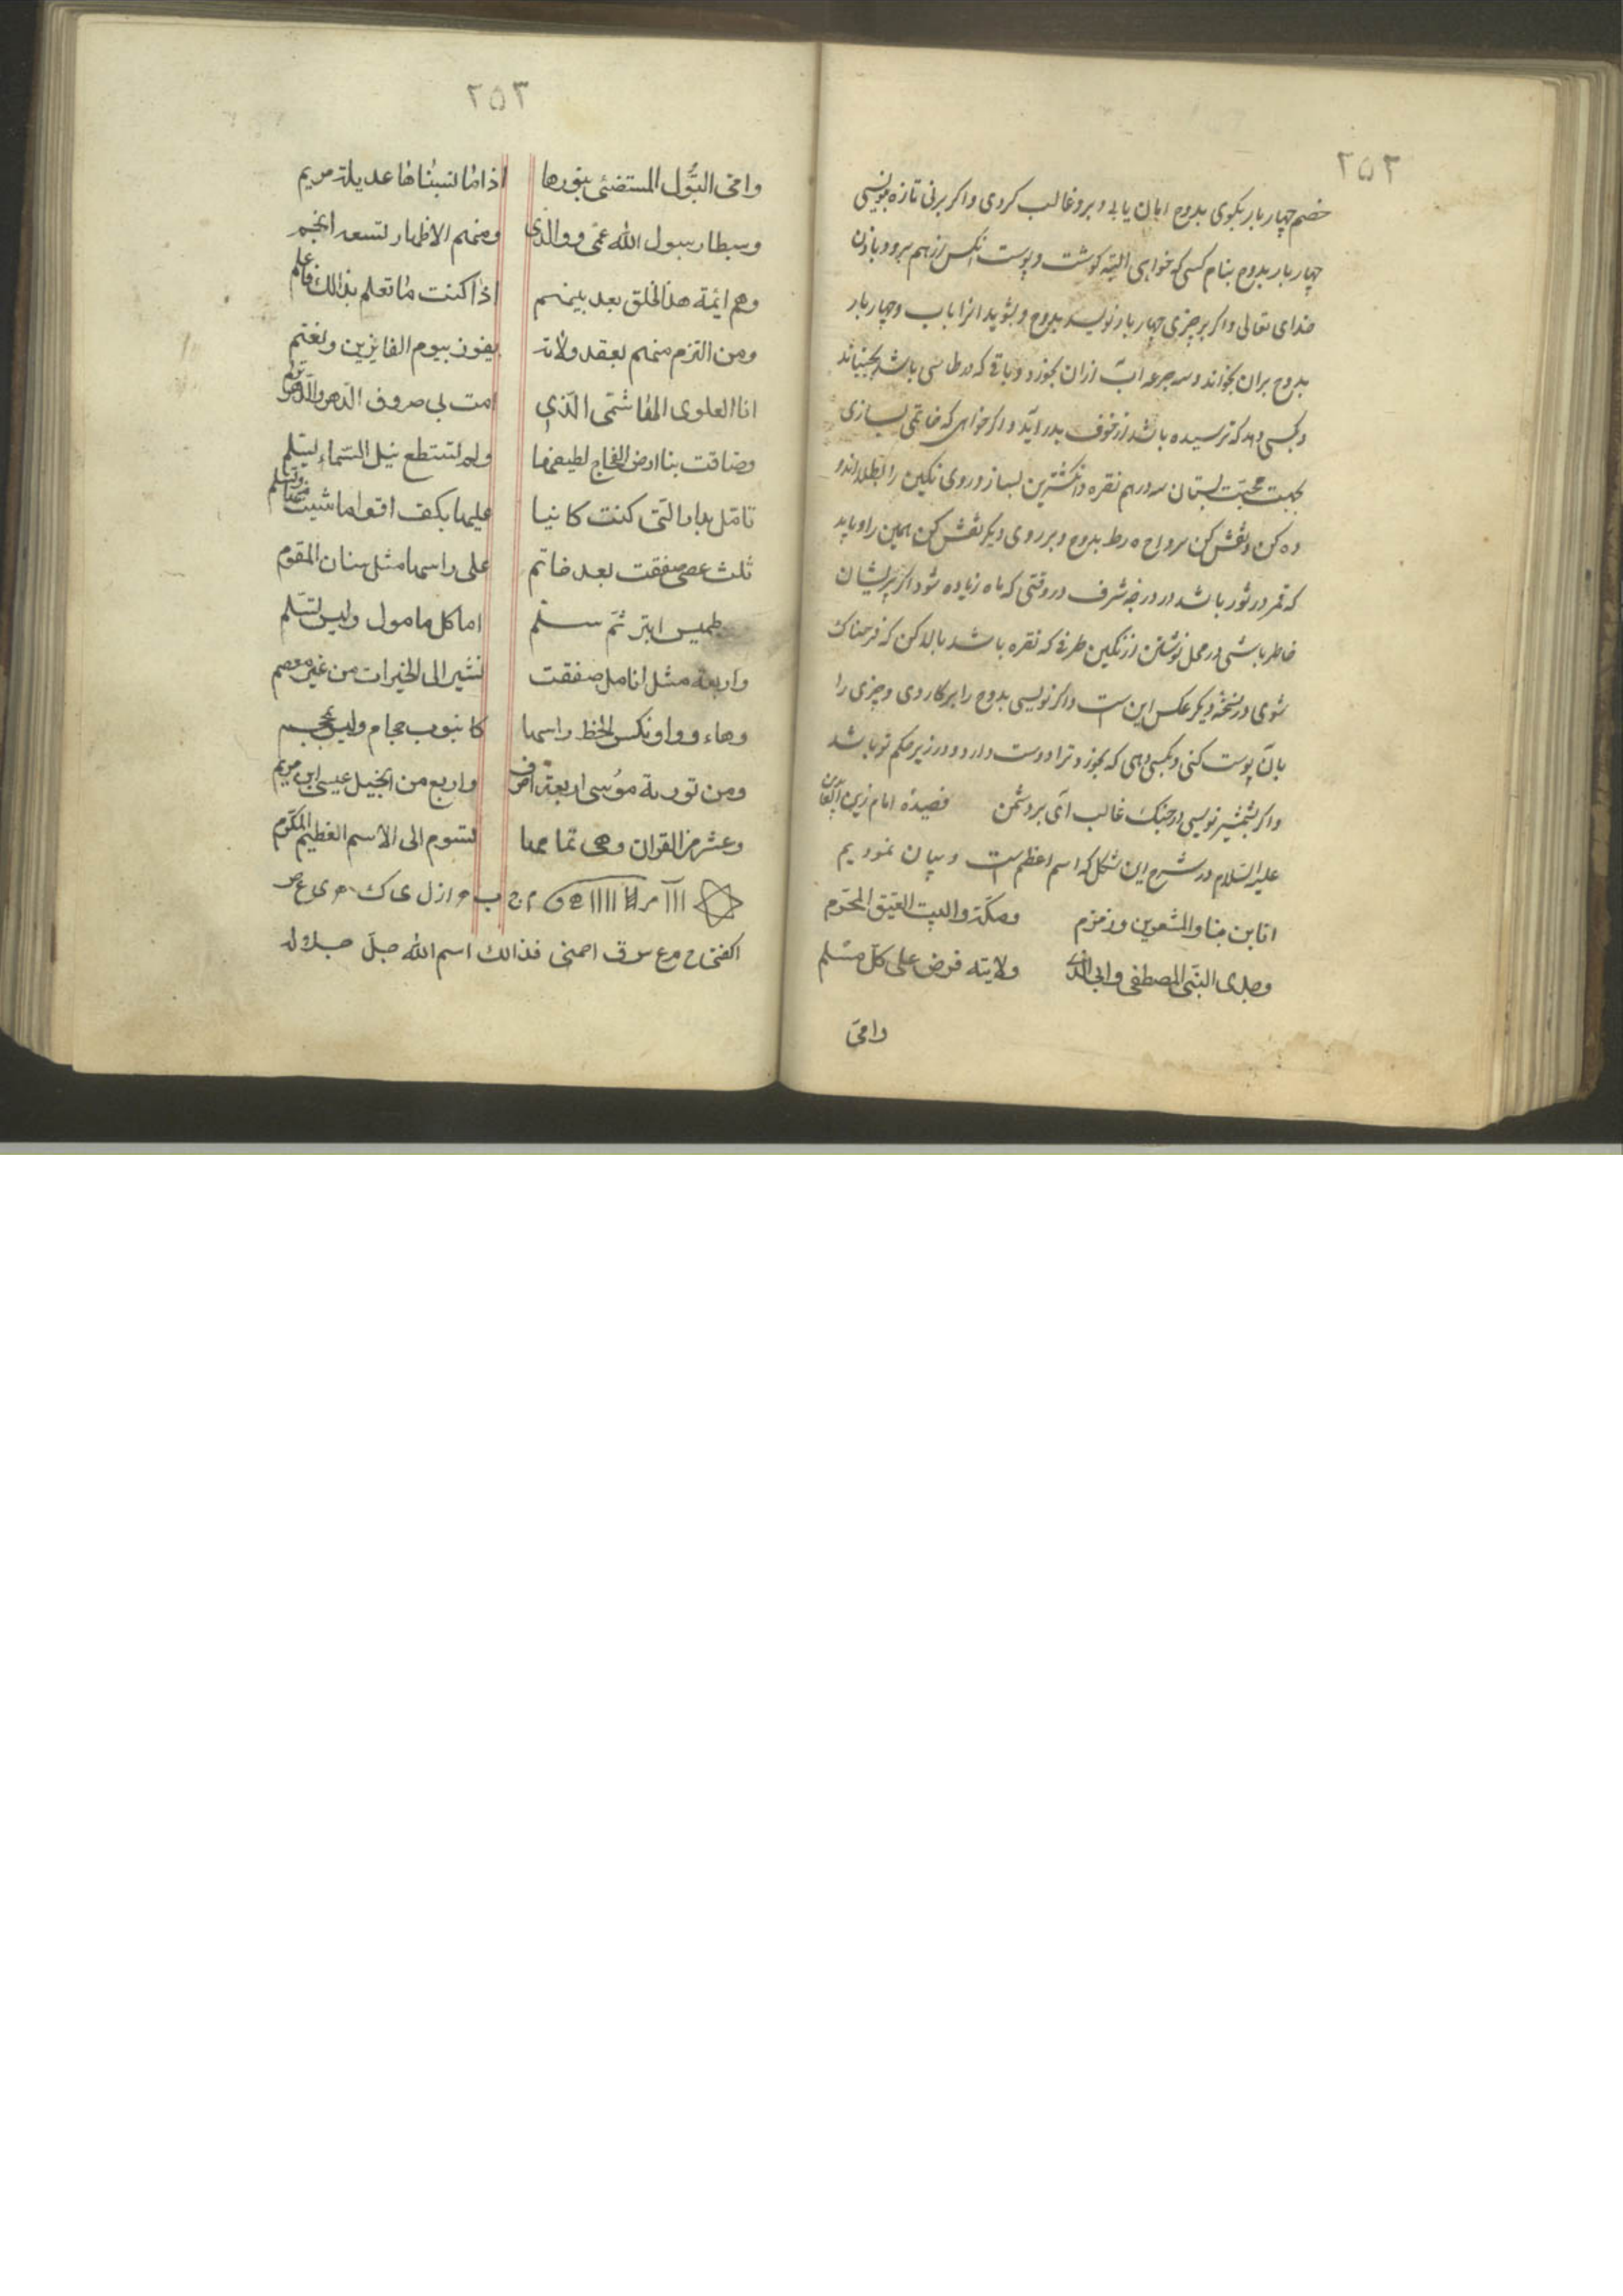 ۲۵۲
خصم چهار بار بکوی بدوح امان یابی و برو غالب کردی و اکر برنی تازه بنویسی
چهار بار بدوح بنام کسی که خواهی البته کوشت و پوست انکس از هم برود باذن
خدای تعالی و اکر بر چیزی چهار بار نویسد بدوح و بشوید انرا باب و چهار بار
بدوح بران بخواند و سه جرعه آب ازان بخورد و باقی که در طاسی باشد بجنباند
و بکسی دهد که ترسیده باشد از خوف بدر آید و اکر خواهی که خاتمی بسازی
بجهت محبت بستان سه درهم نقره و انکشترین بساز و روی نکین را
ده کن و نقش کن بدوح و بر روی دیکر نقش کن همین را و باید
که قمر در ثور باشد در درجه شرف در وقتی که ماه زیاده شود اکر پریشان
خاطر باشی در محل نوشتن از نکین طرفی که نقره باشد بالا کن که فرحناک
شوی در نسخهٔ دیکر عکس این است و اکر نویسی بدوح را بر کاردی و چیزی را
بآن پوست کنی و بکسی دهی که بخورد ترا دوست دارد و در زیر حکم تو باشد
و اکر بشمشیر نویسی در جنک غالب آئی بر دشمن قصیدهٔ امام زین العابدین
علیه السلام در شرح این شکل که اسم اعظم است و بیان نمودیم
انا بن منا والمشعرین وزمزم ومکة والبیت العتیق المحرم
وجدی النبی المصطفی وابی الذی ولایته فرض علی کل مسلم
وامی
۲۵۳
وامی البتول المستضئی بنورها اذا ما نسبناها عدیلة مریم
وسبطا رسول الله عمی ووالدی ومنهم الاظهار تسعه انجم
وهم ائمة هذا لخلق بعد بینهم اذا کنت ما تعلم بذالک فاعلم
ومن التزم منهم بعقد ولاته یفوز بیوم الفایزین ویغتم
انا العلوی الهاشمی الذی امت بی صروف الدهر والدهر
وضاقت بنا ارض الفجاج لطیفها ولم تستطع نیل السماء بسلم
تامل بدا التی کنت کانیا علیها بکف اقوا ما شیت
ثلث عصی صفقت بعد خاتم علی راسها مثل سنان المقوم
طمیس ابتر ثم سلم اما کل مامول ولیس تسلم
واربعة مثل انامل صفقت تشیر الی الخیرات من غیر معصم
وهاء وواو نکس لخظ راسها کانبوب حجام ولیس بمحجم
ومن توریة موسی اربعة احرف واربع من انجیل عیسی ابن مریم
وعشر من القران وهی تمامها لتسوم الی الاسم العظیم المکرم
اکفنی فذالک اسم الله جل جلاله